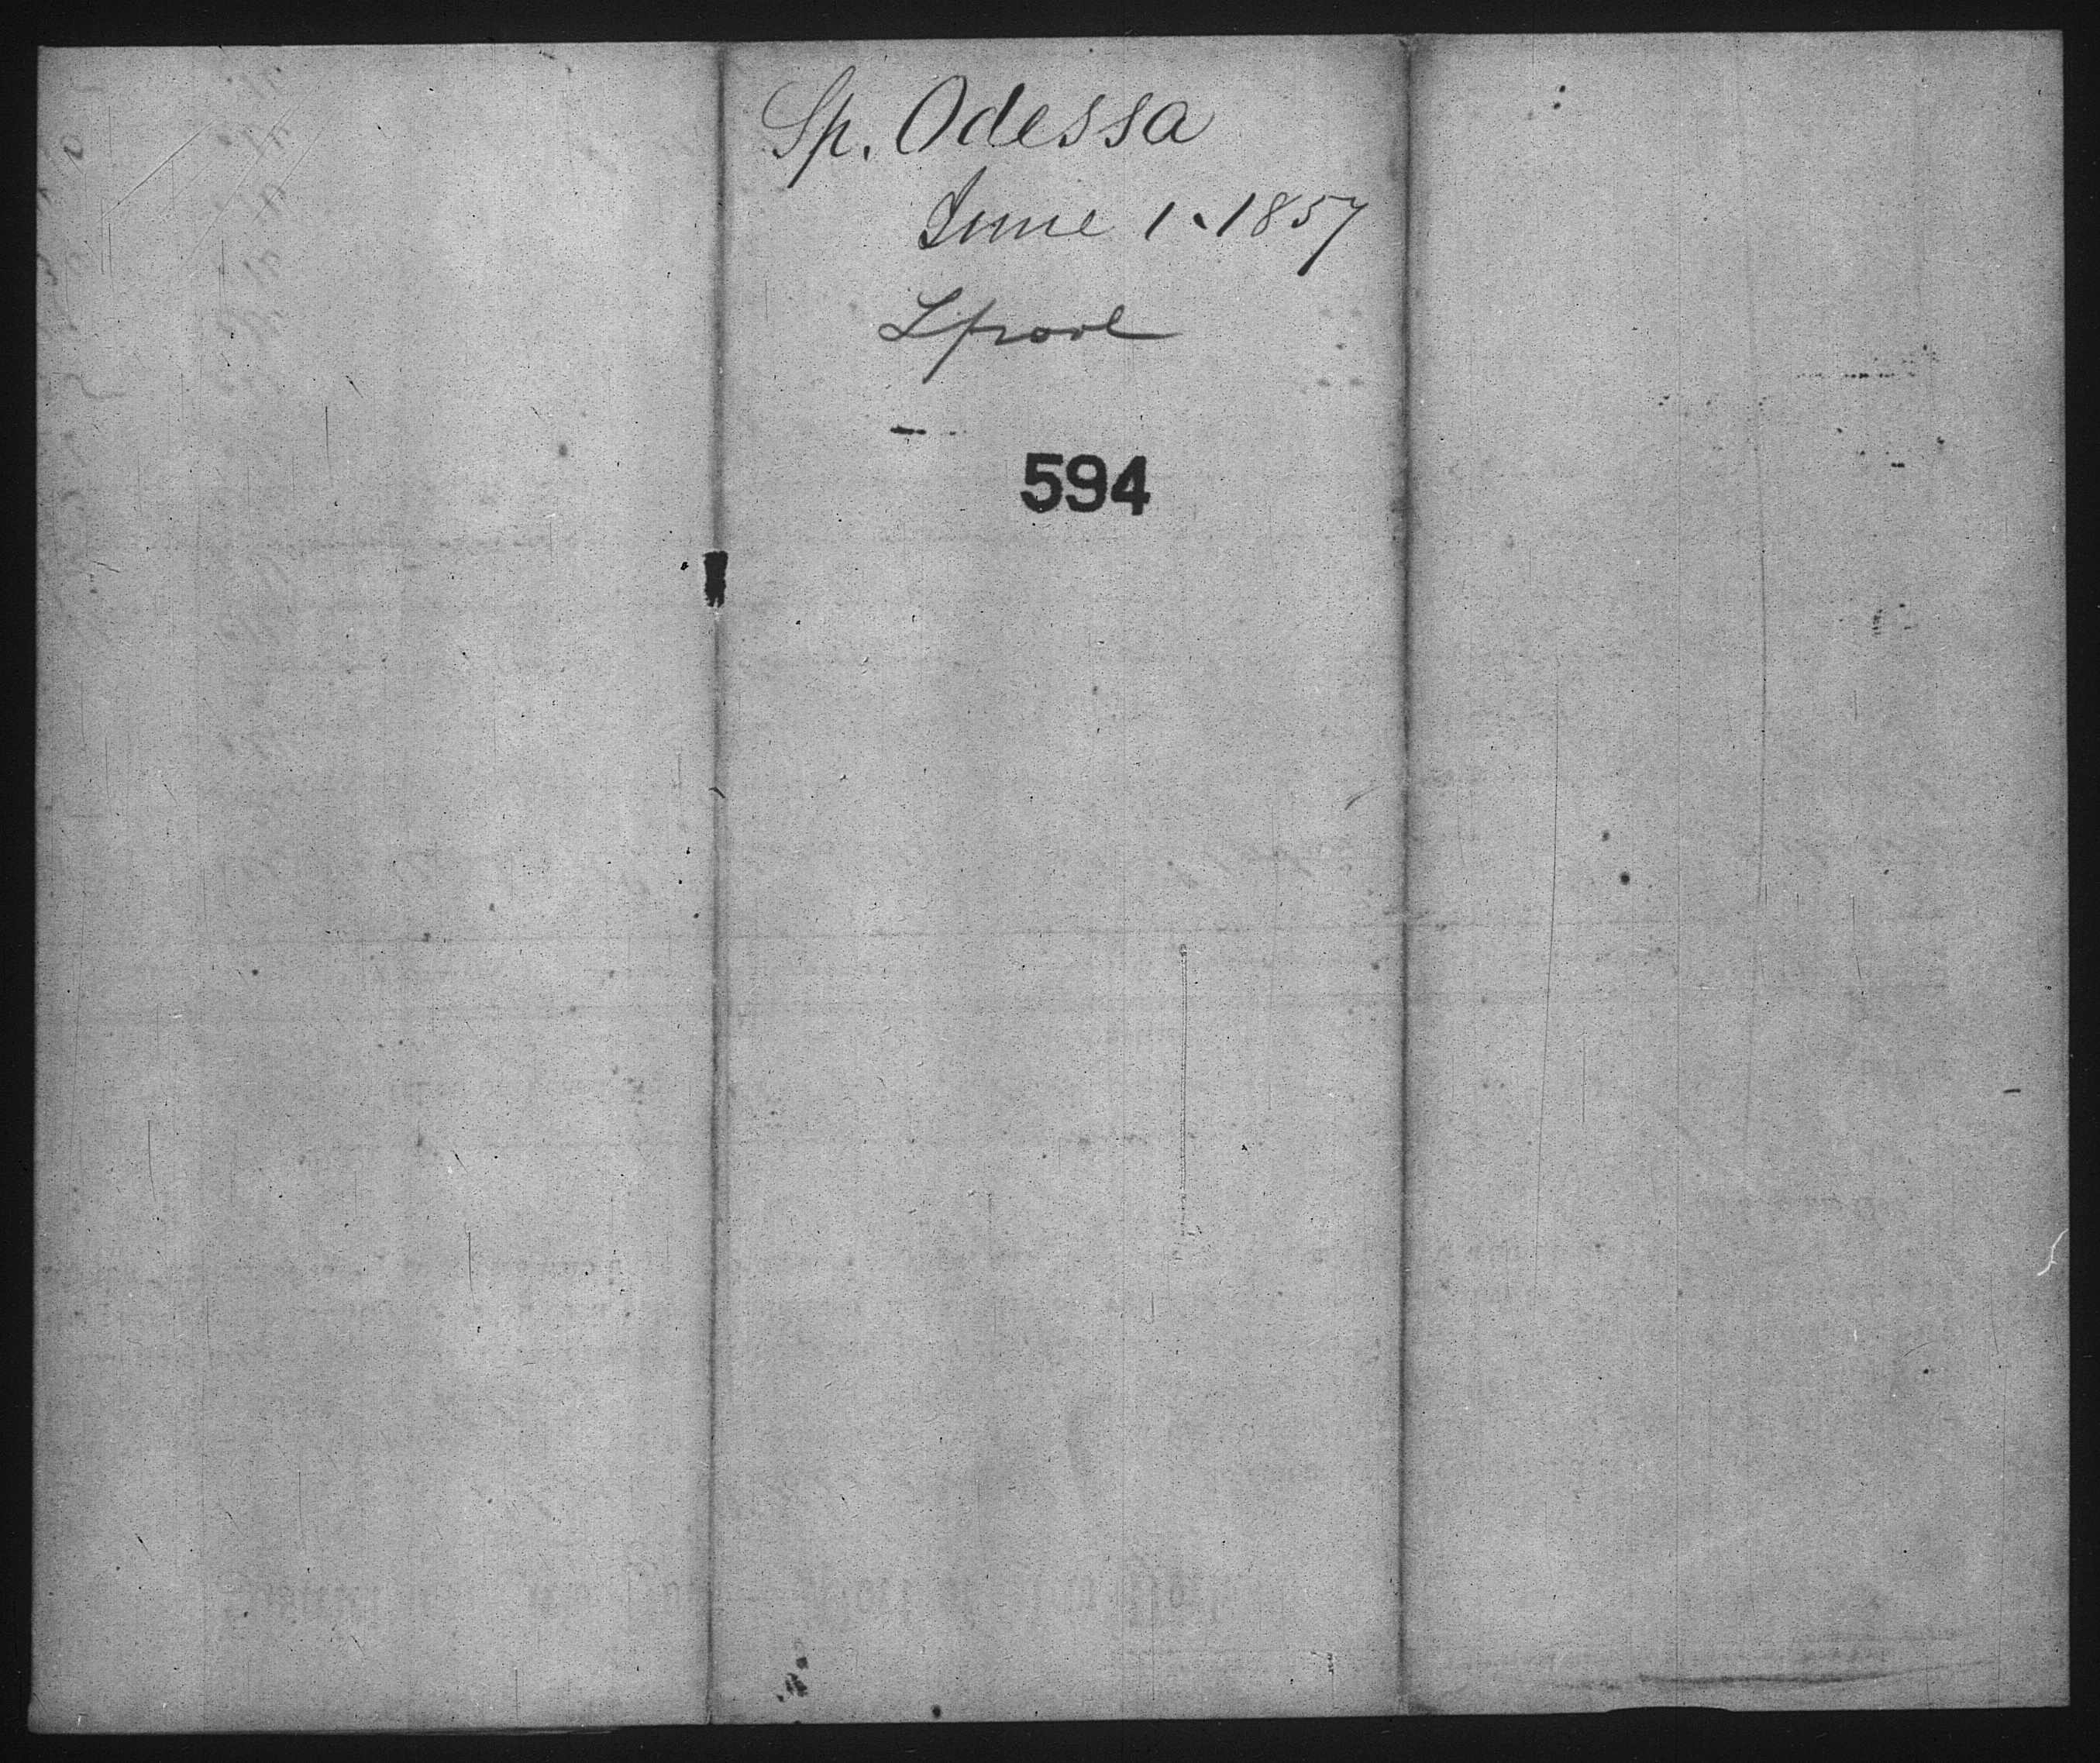 Sp. Odessa
June 1. 1857
Lpool
594